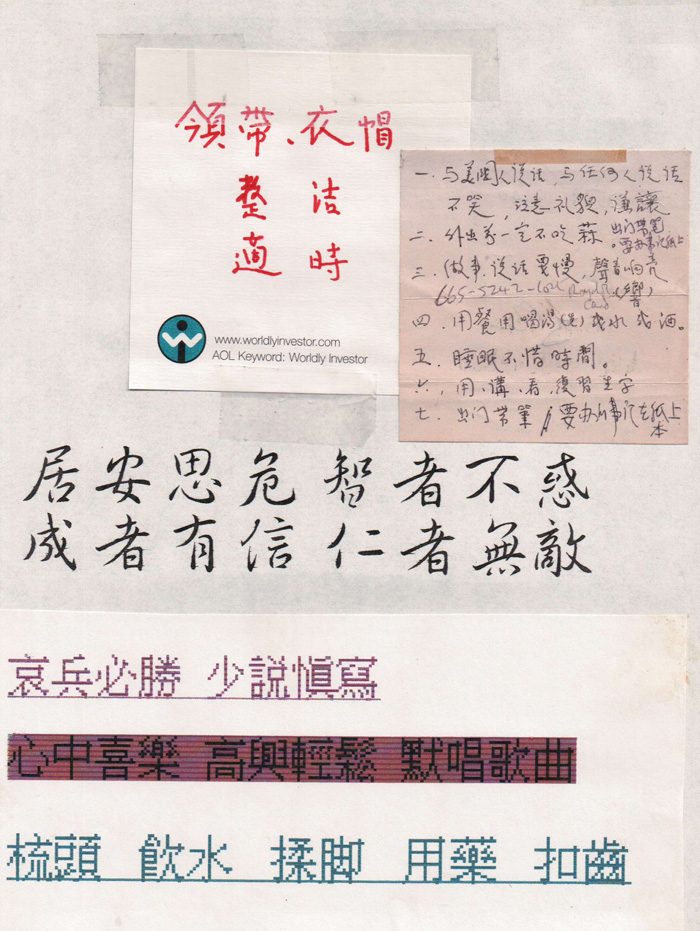 領帶、衣帽
整 洁
適 時
www.worldlyinvestor.com
AOL Keyword: Worldly Investor
一. 与美國人说话, 与任何人说话
不笑, 注意礼貌, 謙讓
二. 外出前一定不吃蒜 出门带笔
要办事记纸上
三. 做事、说话要慢, 聲音响亮
665-5242 (響)
四. 用餐用喝湯(先)或水或酒。
五. 睡眠不惜時間。
六, 用、講、看、復習生字
七. 出门带筆, 要办的事记在紙上
本
居安思危 智者不惑
成者有信 仁者無敵
哀兵必勝 少説慎寫
心中喜樂 高興輕鬆 默唱歌曲
梳頭 飲水 揉脚 用藥 扣齒